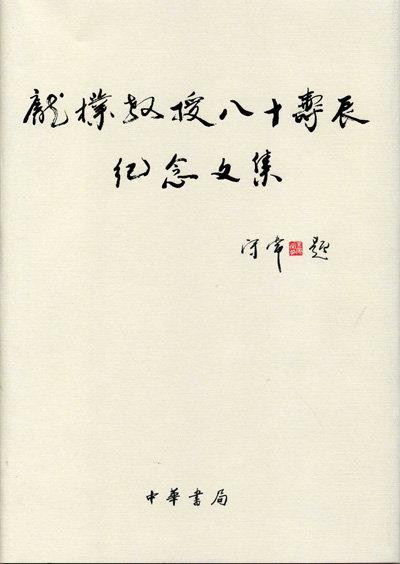 龐樸教授八十壽辰
紀念文集
守常題
中華書局